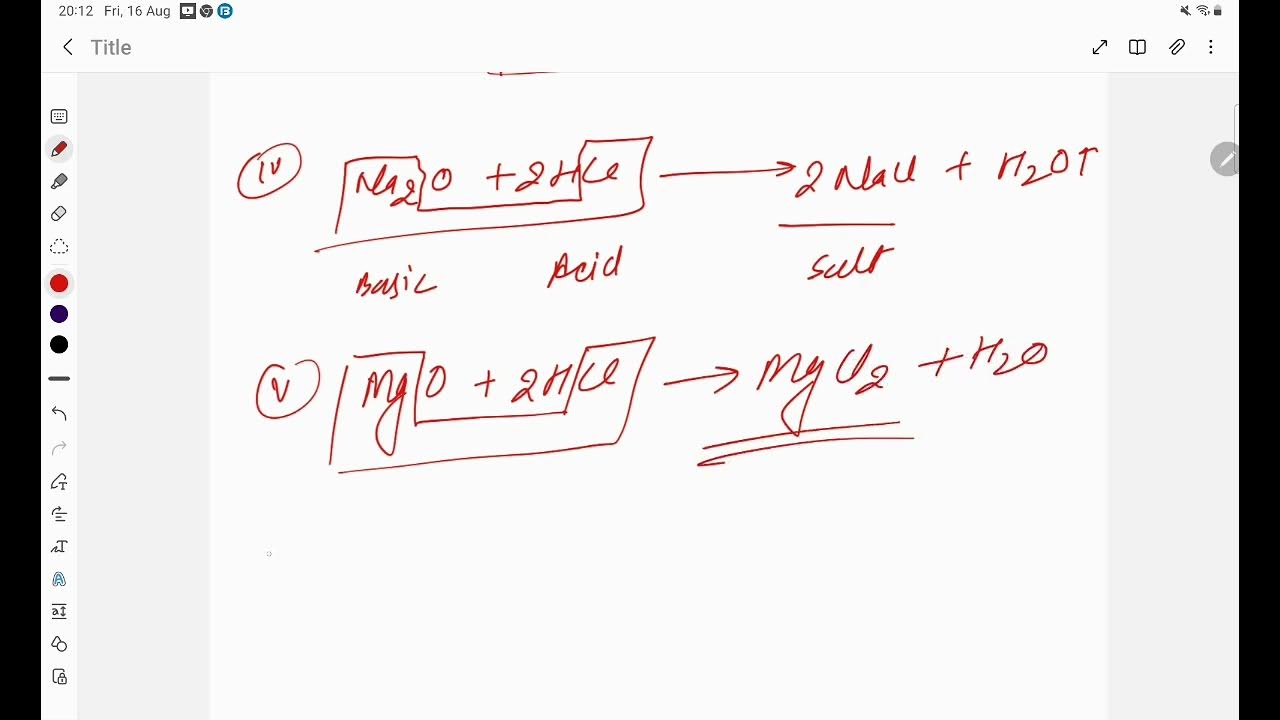 20:12 Fri, 16 Aug
Title
(iv) Na₂O + 2HCl → 2NaCl + H₂O↑
Basic Acid Salt
(v) MgO + 2HCl → MgCl₂ + H₂O